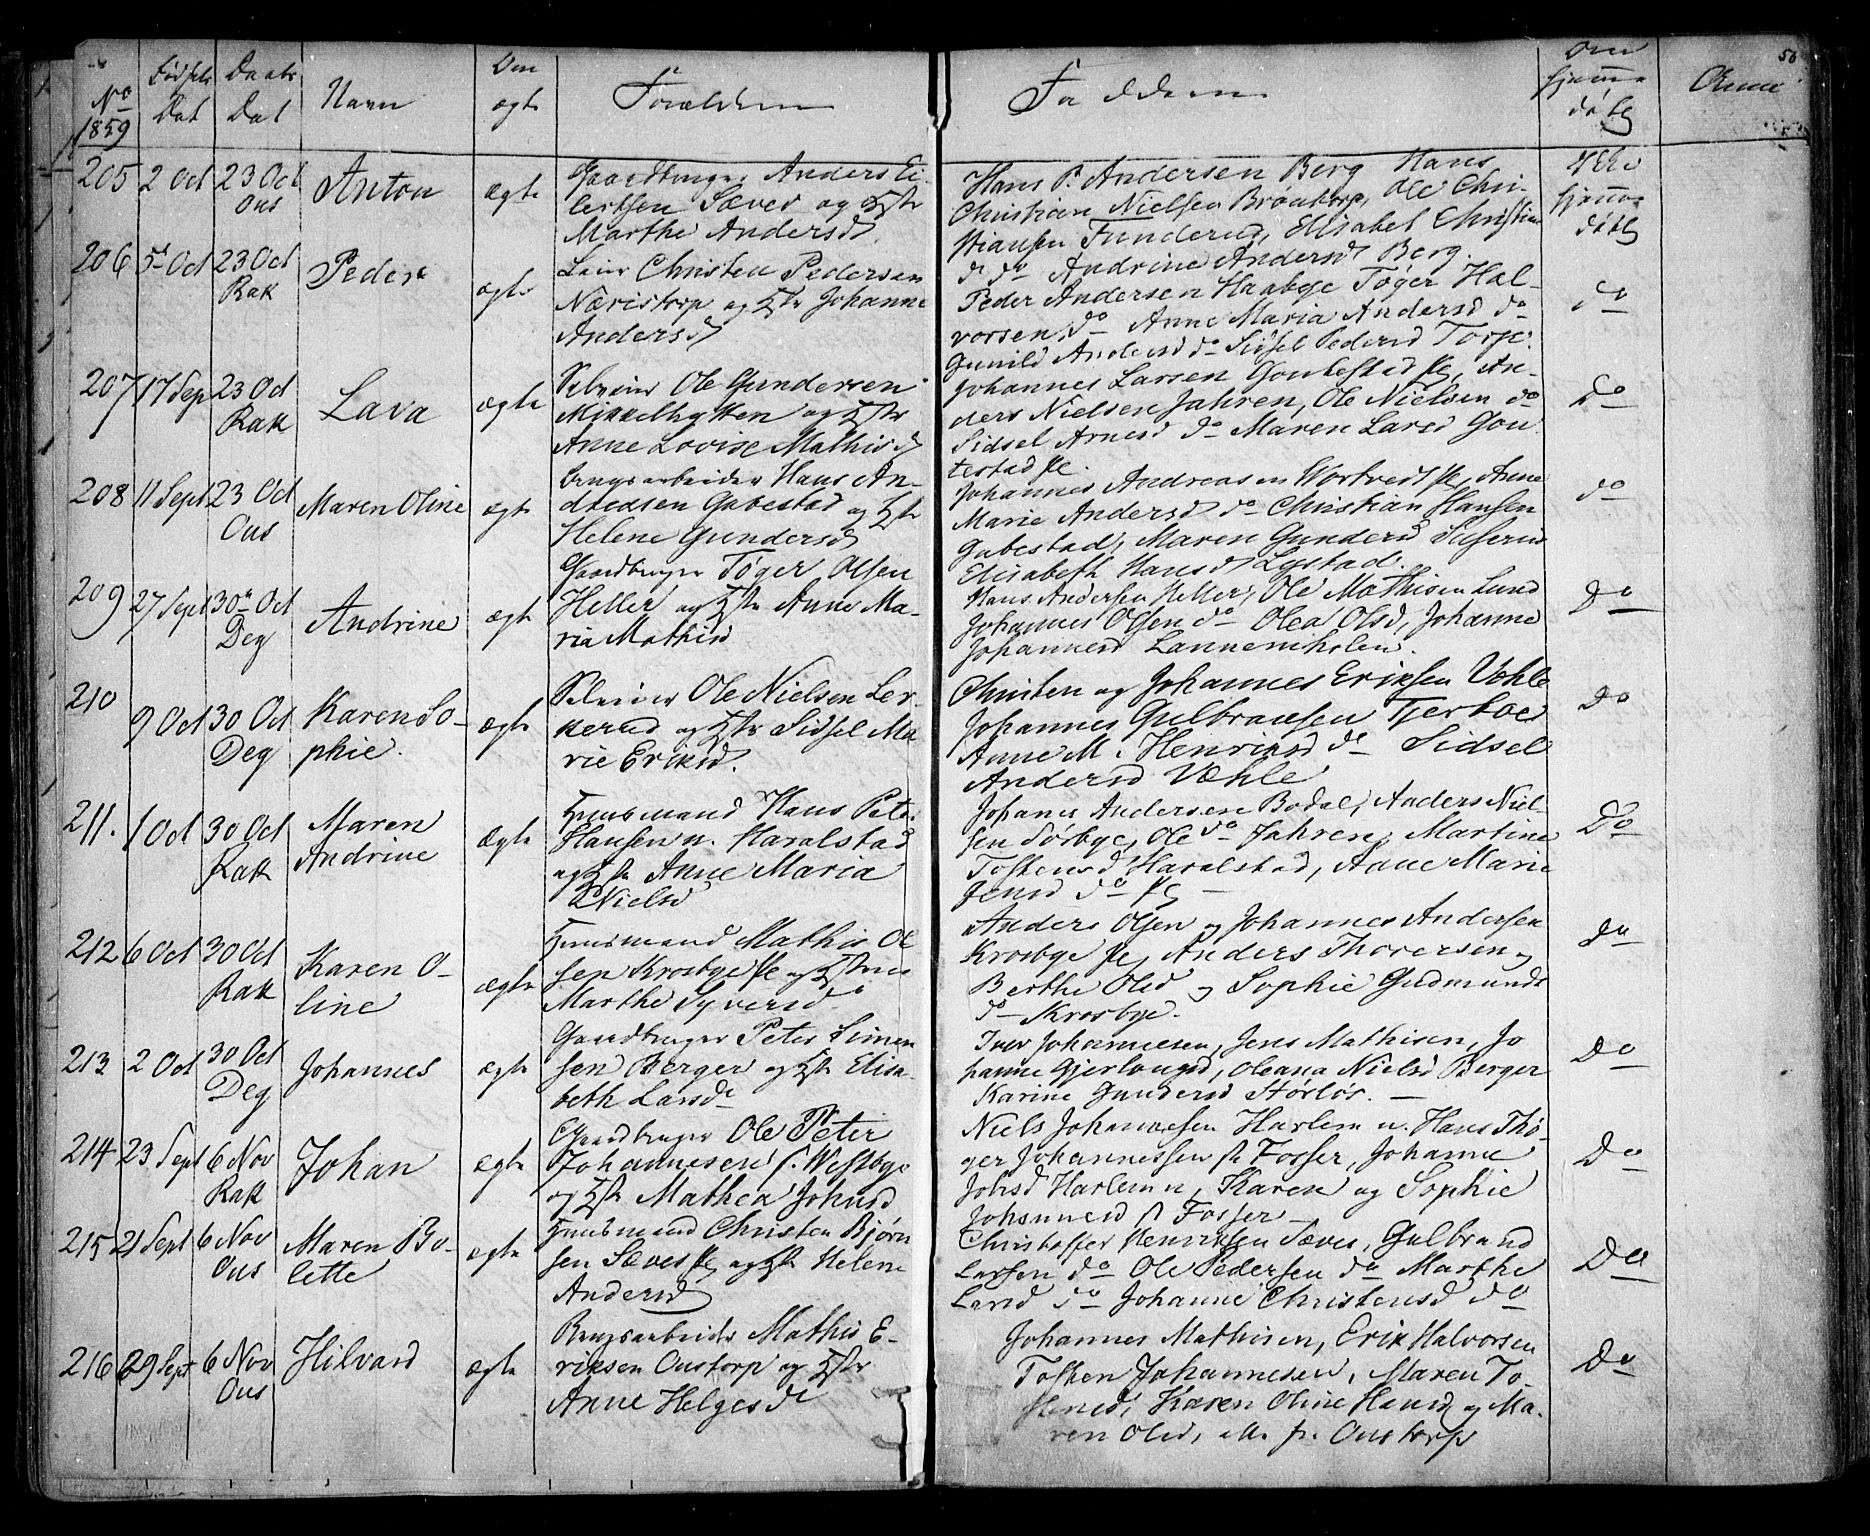 No 1859 | Fødsels Dat | Daabs Dat | Navn | Om ægte | Forældrene | Faddere | Om hjemmedøbt | Anm | 50
205 | 2 Oct | 23 Oct Ous | Anton | ægte
Gaardbruger Anders Ei-
lertsen Sæves og Hstr
Marthe Andersd.
Hans P. Andersen Berg Hans
Christian Nielsen Brøntorp, Ole Chri-
stiansen Funderud, Elisabet Christian
d do Andrine Andersd Berg.
Ikke hjemmedøbt
206 | 5 Oct | 23 Oct Rak | Peder | ægte
Leier Christen Pedersen
Næristorp og Hstr Johanne
Andersd
Peder Andersen Haabye Tøger Hal-
vorsen do Anne Maria Andersd do
Gunild Andersd do Sidsel Pedersd Torp.
do
207 | 17 Sep | 23 Oct Rak | Lava | ægte
Selveier Ole Gundersen
Mikkelhytten og Hstr
Anne Lovise Mathisd
Johannes Larsen Goutestad, An-
ders Nielsen Jahren, Ole Nielsen do
Sidsel Arnesd do Maren Larsd Gou
testad
Do
208 | 11 Sept | 23 Oct Ous | Maren Oline | ægte
Brugsarbeider Hans An-
dreasen Gabestad og Hstr
Helene Gundersd
Johannes Andreasen Wortvedt, Anne
Marie Andersd do Christian Hansen
Gabestad, Maren Gundersd
Elisabeth Hansd Lystad.
do
209 | 27 Sept | 30 Oct Deg | Andrine | ægte
Gaardbruger Tøger Olsen
Heller og Hstr Anne Ma-
ria Mathisd
Hans Andersen Heller, Ole Mathisen Lund
Johannes Olsen do Olea Olsd, Johanne
Johannesd
Do
210 | 9 Oct | 30 Oct Deg | Karen So-
phie. | ægte
Selveier Ole Nielsen Ler-
kerud og Hstr Sidsel Ma
rie Eriksd.
Christen og Johannes Eriksen Vohle
Johannes Gulbransen Tjerboe
Anne M. Henriksd do Sidsel
Andersd Væhle
Do
211. | 1 Oct | 30 Oct Rak | Maren
Andrine | Ægte
Huusmand Hans Peter
Hansen n. Haralstad
og Hstr Anne Maria
Nielsd
Johanes Andersen Bodal, Anders Niel-
sen Sørbye, Ole do Jahren, Martine
Tostensd Haralstad, Anne Marie
Jensd do
Do
212 | 6 Oct | 30 Oct Rak | Karen O-
line | ægte
Huusmand Mathis Ol
sen Krosbye og Hstru
Marthe Syversd
Anders Olsen og Johannes Andersen
Krosbye, Anders Thoresen og
Berthe Olsd og Sophie Gudmunds
d Krosbye.
Do
213 | 2 Oct | 30 Oct Deg | Johannes | ægte
Gaardbruger Peter Simen
sen Berger og Hstr Elisa-
beth Larsd
Iver Johannesen, Jens Mathisen, Jo
hanne Gjerlougsd, Oleana Nielsd Berger
Karine Gundersd Størlør.
Do
214 | 23 Sept | 6 Nov Rak | Johan | ægte
Gaardbruger Ole Peter
Johannesen s. Westbye
og Hstr Mathea Johnsd
Niels Johannesen Harlem n. Hans Thø-
ger Johannessen Fosser, Johanne
Johsd Harlem n, Karen og Sophie
Johannesd Fosser
Do
215 | 21 Sept | 6 Nov Ous | Maren Bo-
lette | ægte
Huusmand Christen Bjørn
sen Sæves og Hstr Helene
Andersd
Christoffer Henriksen Sæves, Gulbrand
Larsen do Ole Pedersen do Marthe
Larsd do Johanne Christensd do
Do
216 | 29 Sept | 6 Nov Ous | Hilvard | ægte
Brugsarbeider Mathis E-
riksen Oustorp og Hstr
Anne Helgesd
Johannes Mathisen, Erik Halvorsen
Tosten Johannesen, Maren To-
stensd, Karen Oline Hansd og Ma-
ren Olsd, alle fr. Oustorp
Do